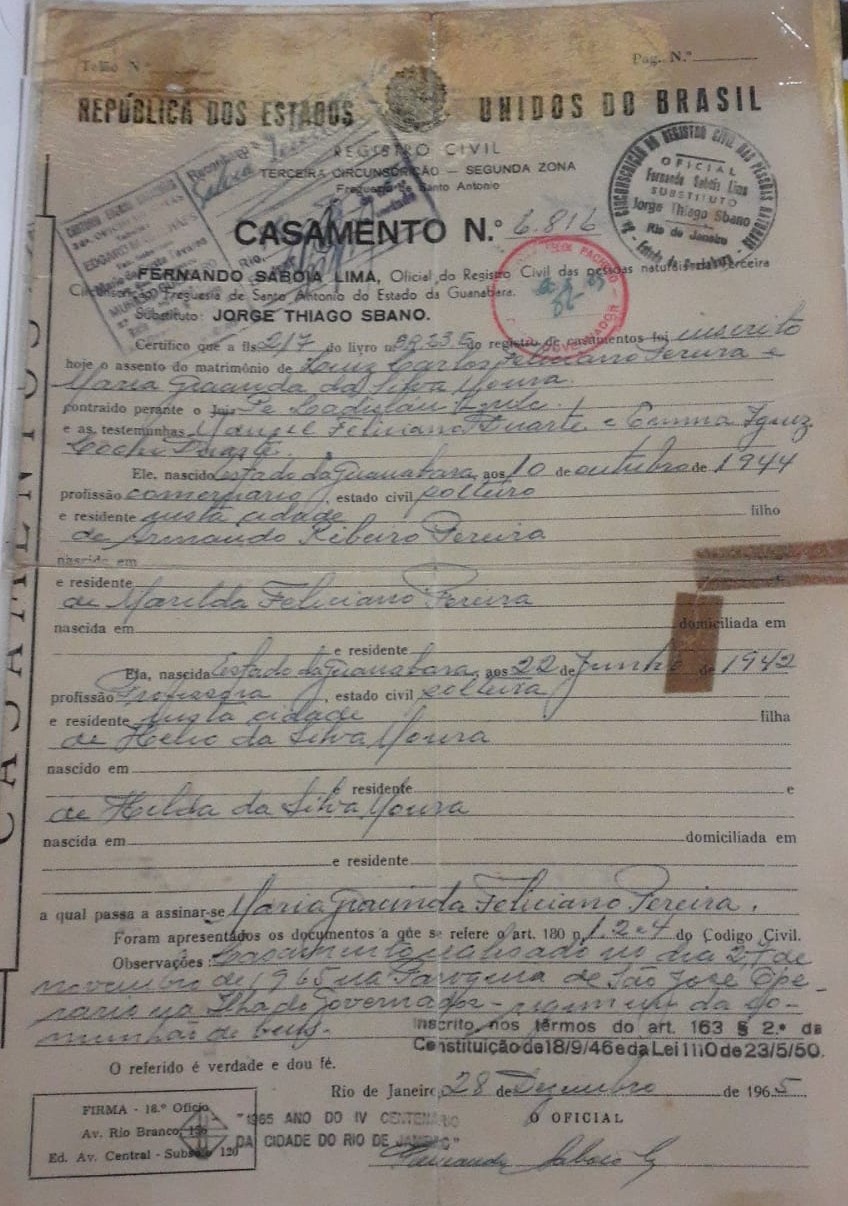 Pag. N.º
REPÚBLICA DOS ESTADOS UNIDOS DO BRASIL
REGISTRO CIVIL
TERCEIRA CIRCUNSCRIÇÃO — SEGUNDA ZONA
Freguesia de Santo Antonio
OFICIAL
Fernando Saboia Lima
SUBSTITUTO
Jorge Thiago Sbano
Rio de Janeiro
CASAMENTO N.º 6.816
FERNANDO SABOIA LIMA, Oficial do Registro Civil das pessoas naturais da Terceira
Circunscrição Freguesia de Santo Antonio do Estado da Guanabara.
Substituto: JORGE THIAGO SBANO.
Certifico que a fls 217 do livro nº do registro de casamentos foi inscrito
hoje o assento do matrimônio de Luiz Carlos Feliciano Pereira e
Maria Gracinda da Silva Moura.
contraído perante o Pe Ladislau
e as testemunhas Manuel Feliciano Duarte e
Ele, nascido Estado da Guanabara, aos 10 de outubro de 1944
profissão comerciario, estado civil solteiro
e residente nesta cidade filho
de Armando Ribeiro Pereira
nascido em
e residente
de Marilda Feliciano Pereira
nascida em domiciliada em
e residente
Ela, nascida Estado da Guanabara, aos 22 de Junho de 1942
profissão Professora, estado civil solteira
e residente nesta cidade filha
de Helio da Silva Moura
nascido em
e residente e
de Hilda da Silva Moura
nascida em domiciliada em
e residente
a qual passa a assinar-se Maria Gracinda Feliciano Pereira.
Foram apresentados os documentos a que se refere o art. 180 n. 1.2.4 do Codigo Civil.
Observações: Casamento realizado no dia 27 de
novembro de 1965 na Paroquia de São José Ope-
rario na Ilha do Governador - regimem da co-
munhão de bens.
Inscrito nos têrmos do art. 163 § 2.º da
Constituição de 18/9/46 e da Lei 1110 de 23/5/50.
O referido é verdade e dou fé.
Rio de Janeiro, 28 de Dezembro de 1965
FIRMA - 18.º Oficio
Av. Rio Branco,
Ed. Av. Central - Subsolo 120
"1965 ANO DO IV CENTENÁRIO
DA CIDADE DO RIO DE JANEIRO"
O OFICIAL
CASAMENTOS